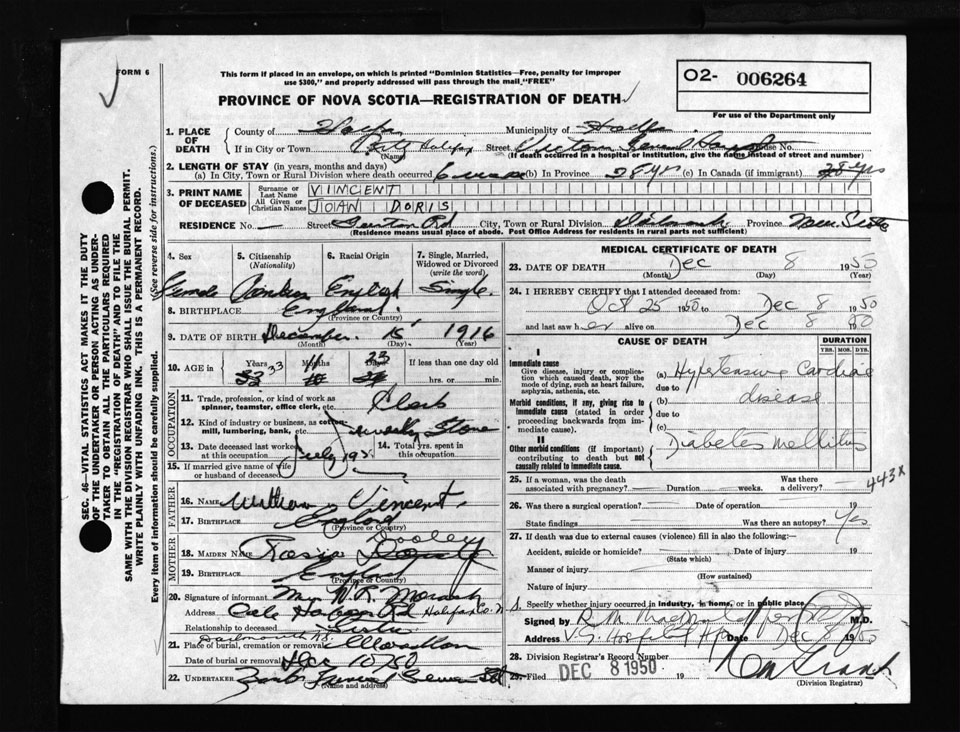 FORM 6
This form if placed in an envelope, on which is printed "Dominion Statistics—Free, penalty for improper
use $300," and properly addressed will pass through the mail "FREE"
O2- 006264
For use of the Department only
PROVINCE OF NOVA SCOTIA—REGISTRATION OF DEATH
1. PLACE OF DEATH County of Municipality of
If in City or Town Street House No.
(Name) (If death occurred in a hospital or institution, give the name instead of street and number)
2. LENGTH OF STAY (in years, months and days)
(a) In City, Town or Rural Division where death occurred (b) In Province 28 yrs (c) In Canada (if immigrant) 28 yrs
3. PRINT NAME OF DECEASED Surname or Last Name VINCENT
All Given or Christian Names JOAN DORIS
RESIDENCE No. — Street Rd City, Town or Rural Division Province Nova Scotia
(Residence means usual place of abode. Post Office Address for residents in rural parts not sufficient)
4. Sex 5. Citizenship (Nationality) 6. Racial Origin 7. Single, Married, Widowed or Divorced (write the word)
Female English Single
8. BIRTHPLACE England
(Province or Country)
9. DATE OF BIRTH December 15 1916
(Month) (Day) (Year)
10. AGE in Years Months Days If less than one day old
33 11 23 hrs. or min.
OCCUPATION
11. Trade, profession, or kind of work as spinner, teamster, office clerk, etc. Clerk
12. Kind of industry or business, as cotton-mill, lumbering, bank, etc. Store
13. Date deceased last worked at this occupation July 14. Total yrs. spent in this occupation
15. If married give name of wife or husband of deceased
FATHER
16. NAME William Vincent
17. BIRTHPLACE England
(Province or Country)
MOTHER
18. MAIDEN NAME Rosie Dooley
19. BIRTHPLACE England
(Province or Country)
20. Signature of informant Mrs W. R.
Address Cole Harbour Rd Halifax Co. N
Relationship to deceased Sister
Dartmouth N.S.
21. Place of burial, cremation or removal
Date of burial or removal Dec 10 50
22. UNDERTAKER
(Name and address)
MEDICAL CERTIFICATE OF DEATH
23. DATE OF DEATH Dec 8 1950
(Month) (Day) (Year)
24. I HEREBY CERTIFY that I attended deceased from:
Oct 25 1950 to Dec 8 1950
and last saw her alive on Dec 8 1950
CAUSE OF DEATH DURATION
YRS. MOS. DYS.
I
Immediate cause
Give disease, injury or complication which caused death, NOT the mode of dying, such as heart failure, asphyxia, asthenia, etc.
(a) Hypertensive Cardiac
due to
Morbid conditions, if any, giving rise to immediate cause (stated in order proceeding backwards from immediate cause).
(b) disease
due to
(c)
II
Other morbid conditions (if important) contributing to death but not causally related to immediate cause.
Diabetes mellitus
443X
25. If a woman, was the death associated with pregnancy? Duration weeks. Was there a delivery?
26. Was there a surgical operation? Date of operation 19
State findings Was there an autopsy? Yes
27. If death was due to external causes (violence) fill in also the following:
Accident, suicide or homicide? Date of injury 19
(State which)
Manner of injury
(How sustained)
Nature of injury
Specify whether injury occurred in industry, in home, or in public place
Signed by R. M. M.D.
Address V.G. Hospital Date Dec 8 1950
28. Division Registrar's Record Number
29. Filed DEC 8 1950 19
(Division Registrar)
SEC. 46—VITAL STATISTICS ACT MAKES IT THE DUTY
OF THE UNDERTAKER OR PERSON ACTING AS UNDER-
TAKER TO OBTAIN ALL THE PARTICULARS REQUIRED
IN THE "REGISTRATION OF DEATH" AND TO FILE THE
SAME WITH THE DIVISION REGISTRAR WHO SHALL ISSUE THE BURIAL PERMIT.
WRITE PLAINLY WITH UNFADING INK. THIS IS A PERMANENT RECORD.
Every item of information should be carefully supplied. (See reverse side for instructions.)